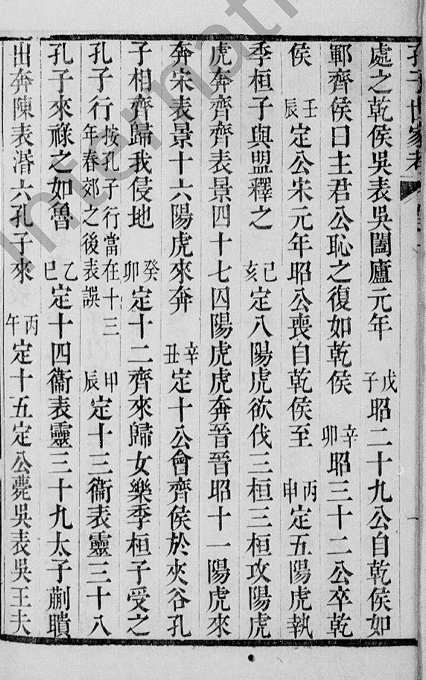 孔子世家考
處之乾侯吳表吳闔廬元年 戊子 昭二十九公自乾侯如
鄆齊侯曰主君公恥之復如乾侯 辛卯 昭三十二公卒乾
侯 壬辰 定公宋元年昭公喪自乾侯至 丙申 定五陽虎執
季桓子與盟釋之 己亥 定八陽虎欲伐三桓三桓攻陽虎
虎奔齊齊表景四十七囚陽虎虎奔晉晉昭十一陽虎來
奔宋表景十六陽虎來奔 辛丑 定十公會齊侯於夾谷孔
子相齊歸我侵地 癸卯 定十二齊來歸女樂季桓子受之
孔子行 按孔子行當在十三年春郊之後表誤 甲辰 定十三衞表靈三十八
孔子來祿之如魯 乙巳 定十四衞表靈三十九太子蒯聵
出奔陳表湣六孔子來 丙午 定十五定公薨吳表吳王夫
International